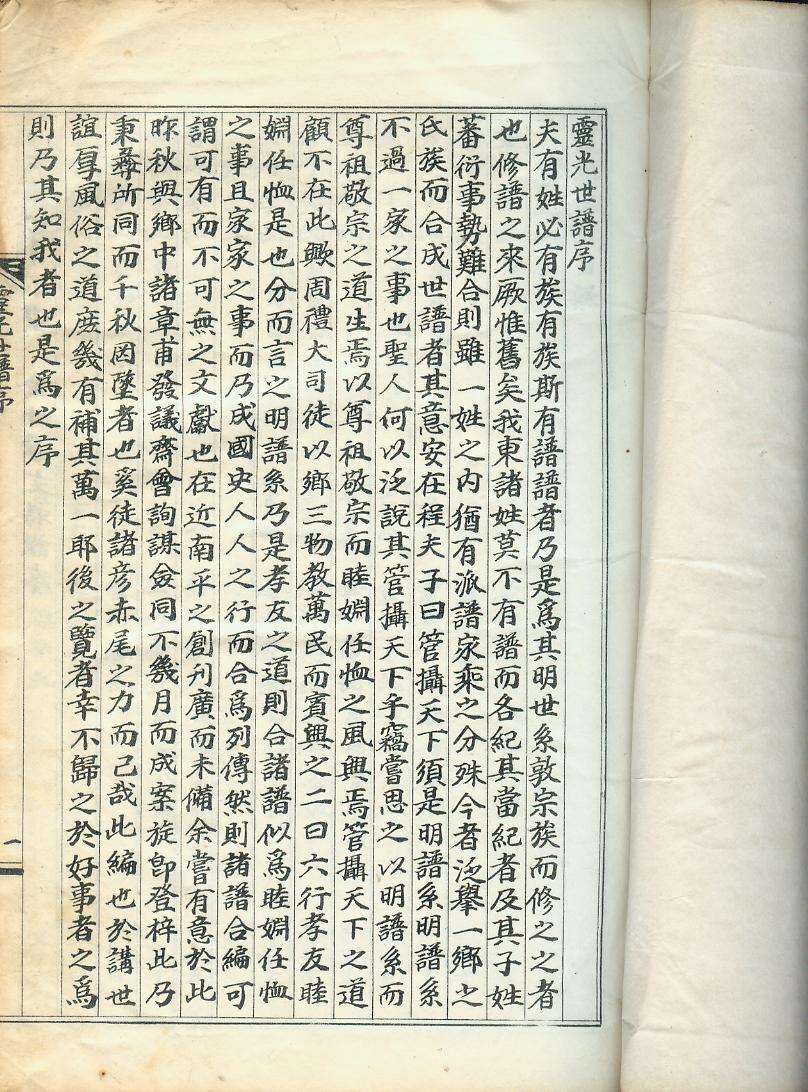 靈光世譜序
夫有姓必有族有族斯有譜譜者乃是爲其明世系敦宗族而修之之者
也修譜之來厥惟舊矣我東諸姓莫不有譜而各紀其當紀者及其子姓
蕃衍事勢難合則雖一姓之內猶有派譜家乘之分殊今者泛擧一鄉之
氏族而合成世譜者其意安在程夫子曰管攝天下須是明譜系明譜系
不過一家之事也聖人何以泛說其管攝天下乎竊嘗思之以明譜系而
尊祖敬宗之道生焉以尊祖敬宗而睦婣任恤之風興焉管攝天下之道
顧不在此歟周禮大司徒以鄉三物教萬民而賓興之二曰六行孝友睦
婣任恤是也分而言之明譜系乃是孝友之道則合諸譜似爲睦婣任恤
之事且家家之事而乃成國史人人之行而合爲列傳然則諸譜合編可
謂可有而不可無之文獻也在近南平之創刋廣而未備余嘗有意於此
昨秋與鄉中諸章甫發議齋會詢謀僉同不幾月而成案旋卽登梓此乃
秉彛所同而千秋因墜者也奚徒諸彦赤尾之力而已哉此編也於講世
誼厚風俗之道庶幾有補其萬一耶後之覽者幸不歸之於好事者之爲
則乃其知我者也是爲之序
靈光世譜序
一